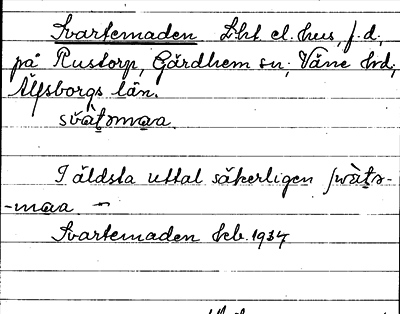 Svartemaden Lht el. hus, f.d.,
på Rustorp, Gärdhem sn; Väne hd;
Älfsborgs län.
svàtəmaa.
I äldsta uttal säkerligen
-maa
Svartemaden kb. 1937